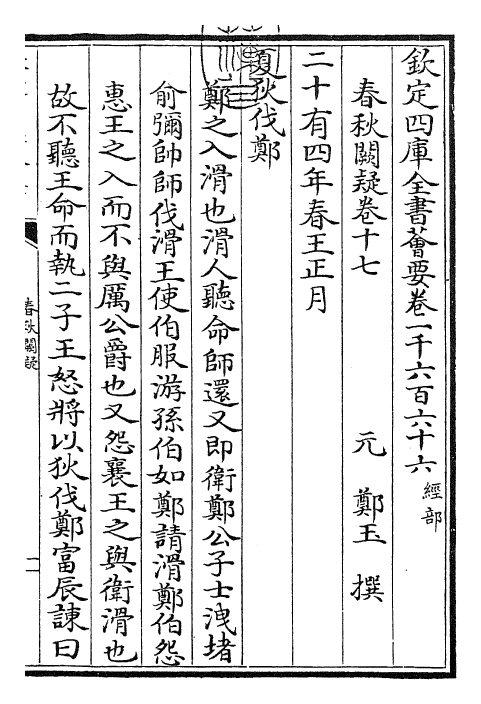 欽定四庫全書薈要卷一千六百六十六經部
春秋闕疑卷十七 元 鄭玉 撰
二十有四年春王正月
夏狄伐鄭
鄭之入滑也滑人聽命師還又即衛鄭公子士洩堵
俞彌帥師伐滑王使伯服游孫伯如鄭請滑鄭伯怨
惠王之入而不與厲公爵也又怨襄王之與衛滑也
故不聽王命而執二子王怒將以狄伐鄭富辰諫曰
春秋闕疑